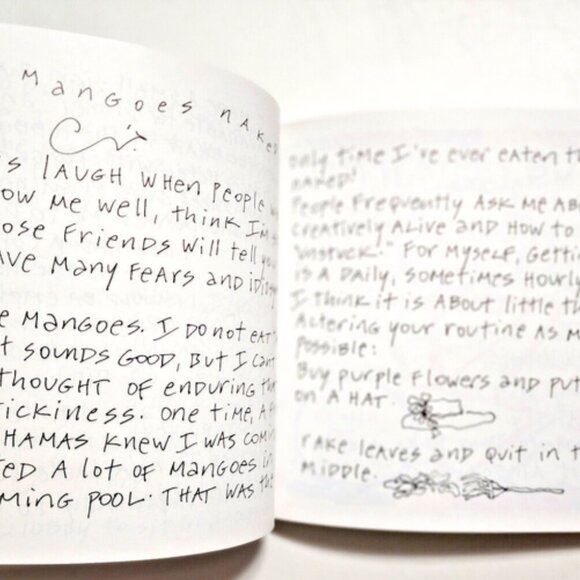 Mangoes naked
s LAUGH WHEN People
ow Me well, think I'm
ose Friends will tell you
AVE MANY FeArs and
e MANGOes. I DO not eat
t sounds good, but I can't
THOUGHT OF enduring
ickiness. one time, A
HAMAS knew I was
ed A lot of Mangoes in
ming pool. THAT was the
only time I've ever eaten
naked!
People Frequently Ask Me About
creatively Alive and How to
"unstuck." For Myself, Getting
is A Daily, sometimes Hourly
I think it is About little
Altering your routine As
possible:
Buy purple Flowers and put
on A HAT.
rake leaves and quit in the
Middle.